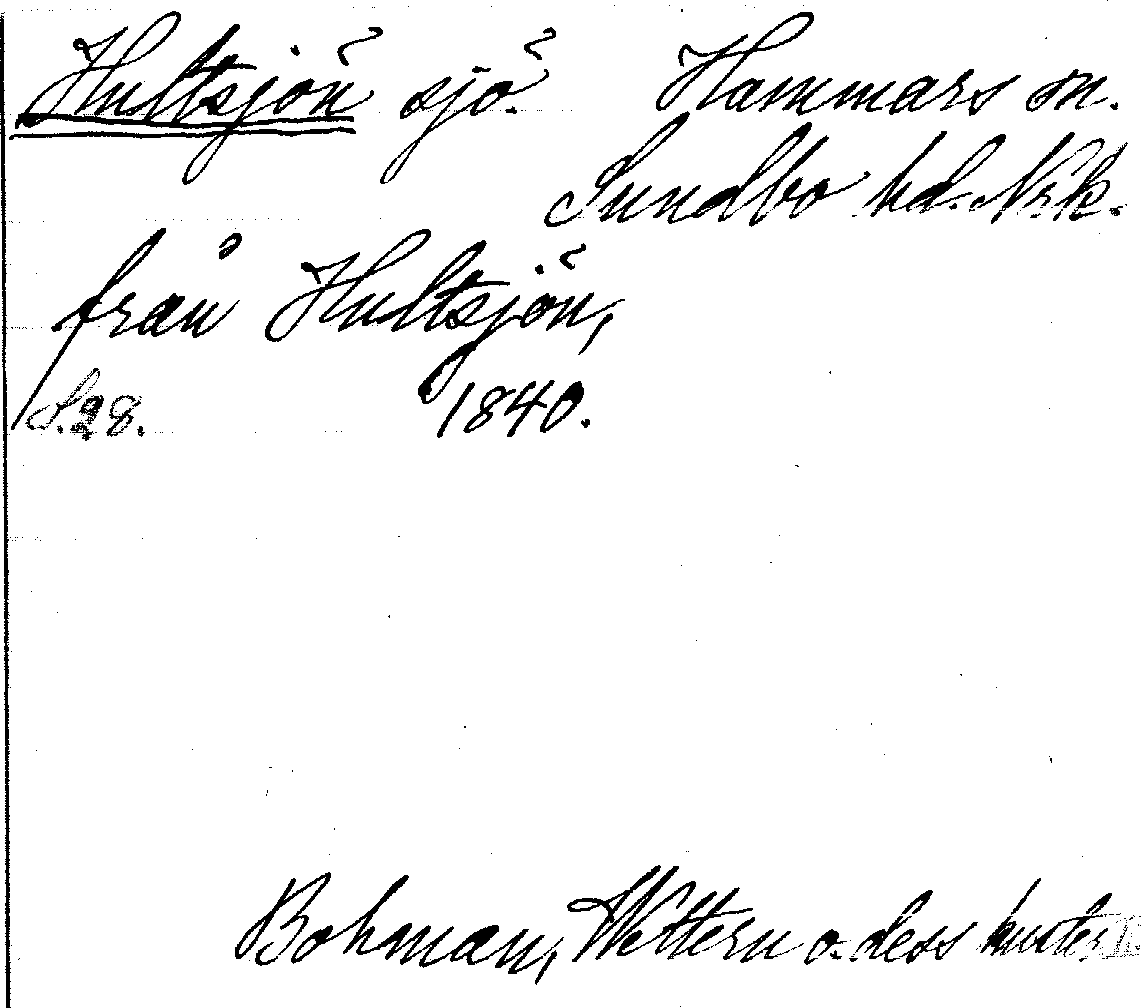 Hultsjön sjö. Hammars sn.
Sundbo hd. Nrk.
från Hultsjön,
S. 28. 1840.
Bohman, Wettern o. dess kuster I.